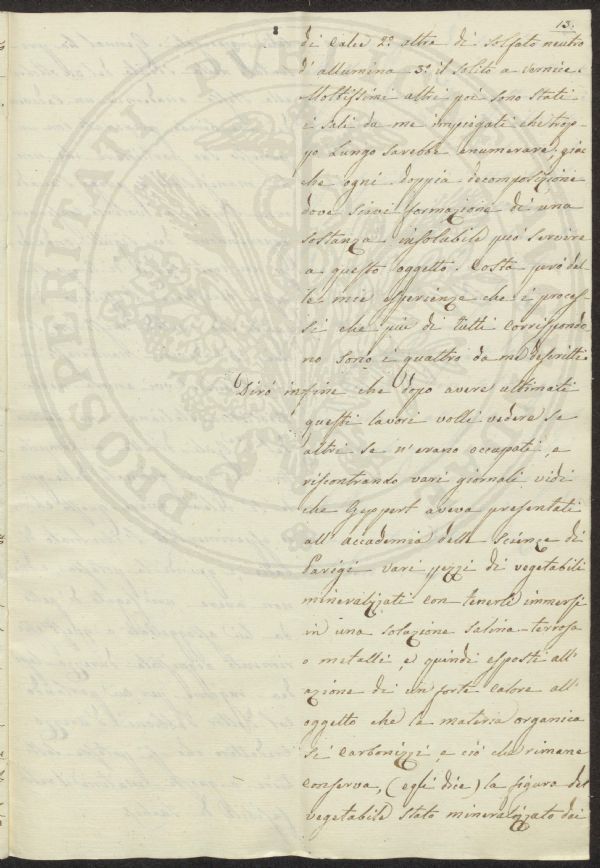 13.
di calce 2º altra di solfato neutro
d'allumina 3º il solito a vernice.
Moltissimi altri poi sono stati
i sali da me impiegati che trop-
po lungo sarebbe enumerare, giac
che ogni doppia decomposizione
dove siavi formazione di una
sostanza insolubile può servire
a questo oggetto. Costa però del-
le mie esperienze che i proces-
si che più di tutti corrispondo
no sono i quattro da me descritti.
Dirò infine che dopo avere ultimati
questi lavori volli vedere se
altri se n'erano occupati e
riscontrando vari giornali vidi
che Geppert aveva presentati
all'accademia delle scienze di
Parigi vari pezzi di vegetabili
mineralizzati con tenerli immersi
in una soluzione salina-terrosa
o metalli, e quindi esposti all'
azione di un forte calore all'
oggetto che la materia organica
si carbonizzi, e ciò che rimane
conserva, (egli dice) la figura del
vegetabile stato mineralizzato dai
PROSPERITATI PUBLI